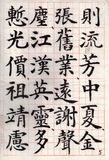 則流芳中夏金
張舊業遠謝聲
塵江漢英靈多
慙光價祖靖